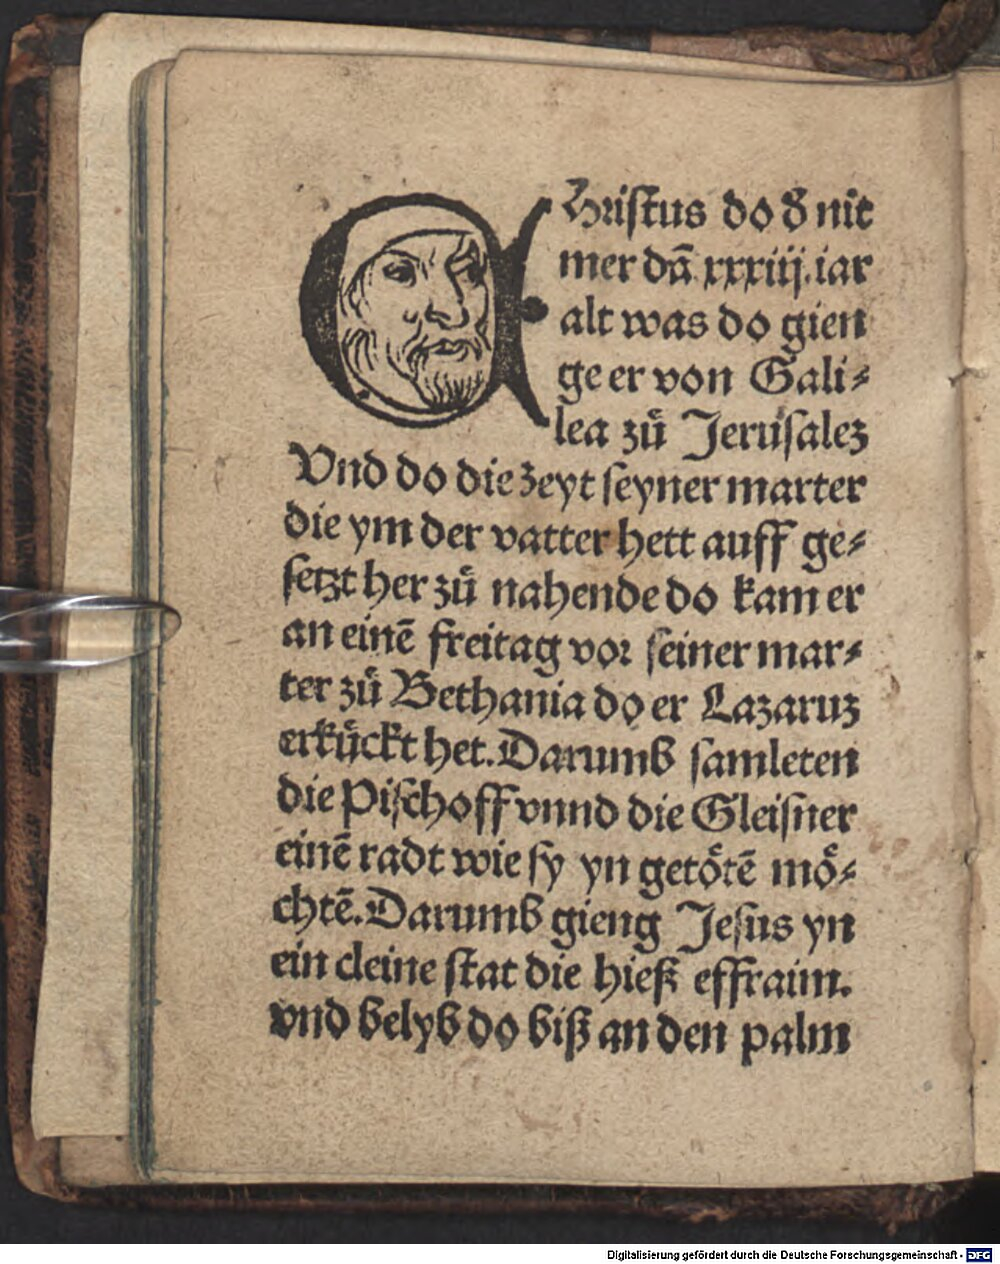 Christus do d̕ nit
mer dā xxxiij. iar
alt was do gien
ge er von Gali⸗
lea zů Jeruſalez
Vnd do die zeyt ſeyner marter
die ym der vatter hett auff ge⸗
ſetzt her zů nahende do kam er
an einē freitag vor ſeiner mar⸗
ter zů Bethania do er Lazaruz
erkůckt het. Darumb ſamleten
die Piſchoff vnnd die Gleiſner
einē radt wie ſy yn getoͤtē moͤ⸗
chtē. Darumb gieng Jeſus yn
ein cleine ſtat die hieß effraim.
vnd belyb do biß an den palm
Digitalisierung gefördert durch die Deutsche Forschungsgemeinschaft - DFG